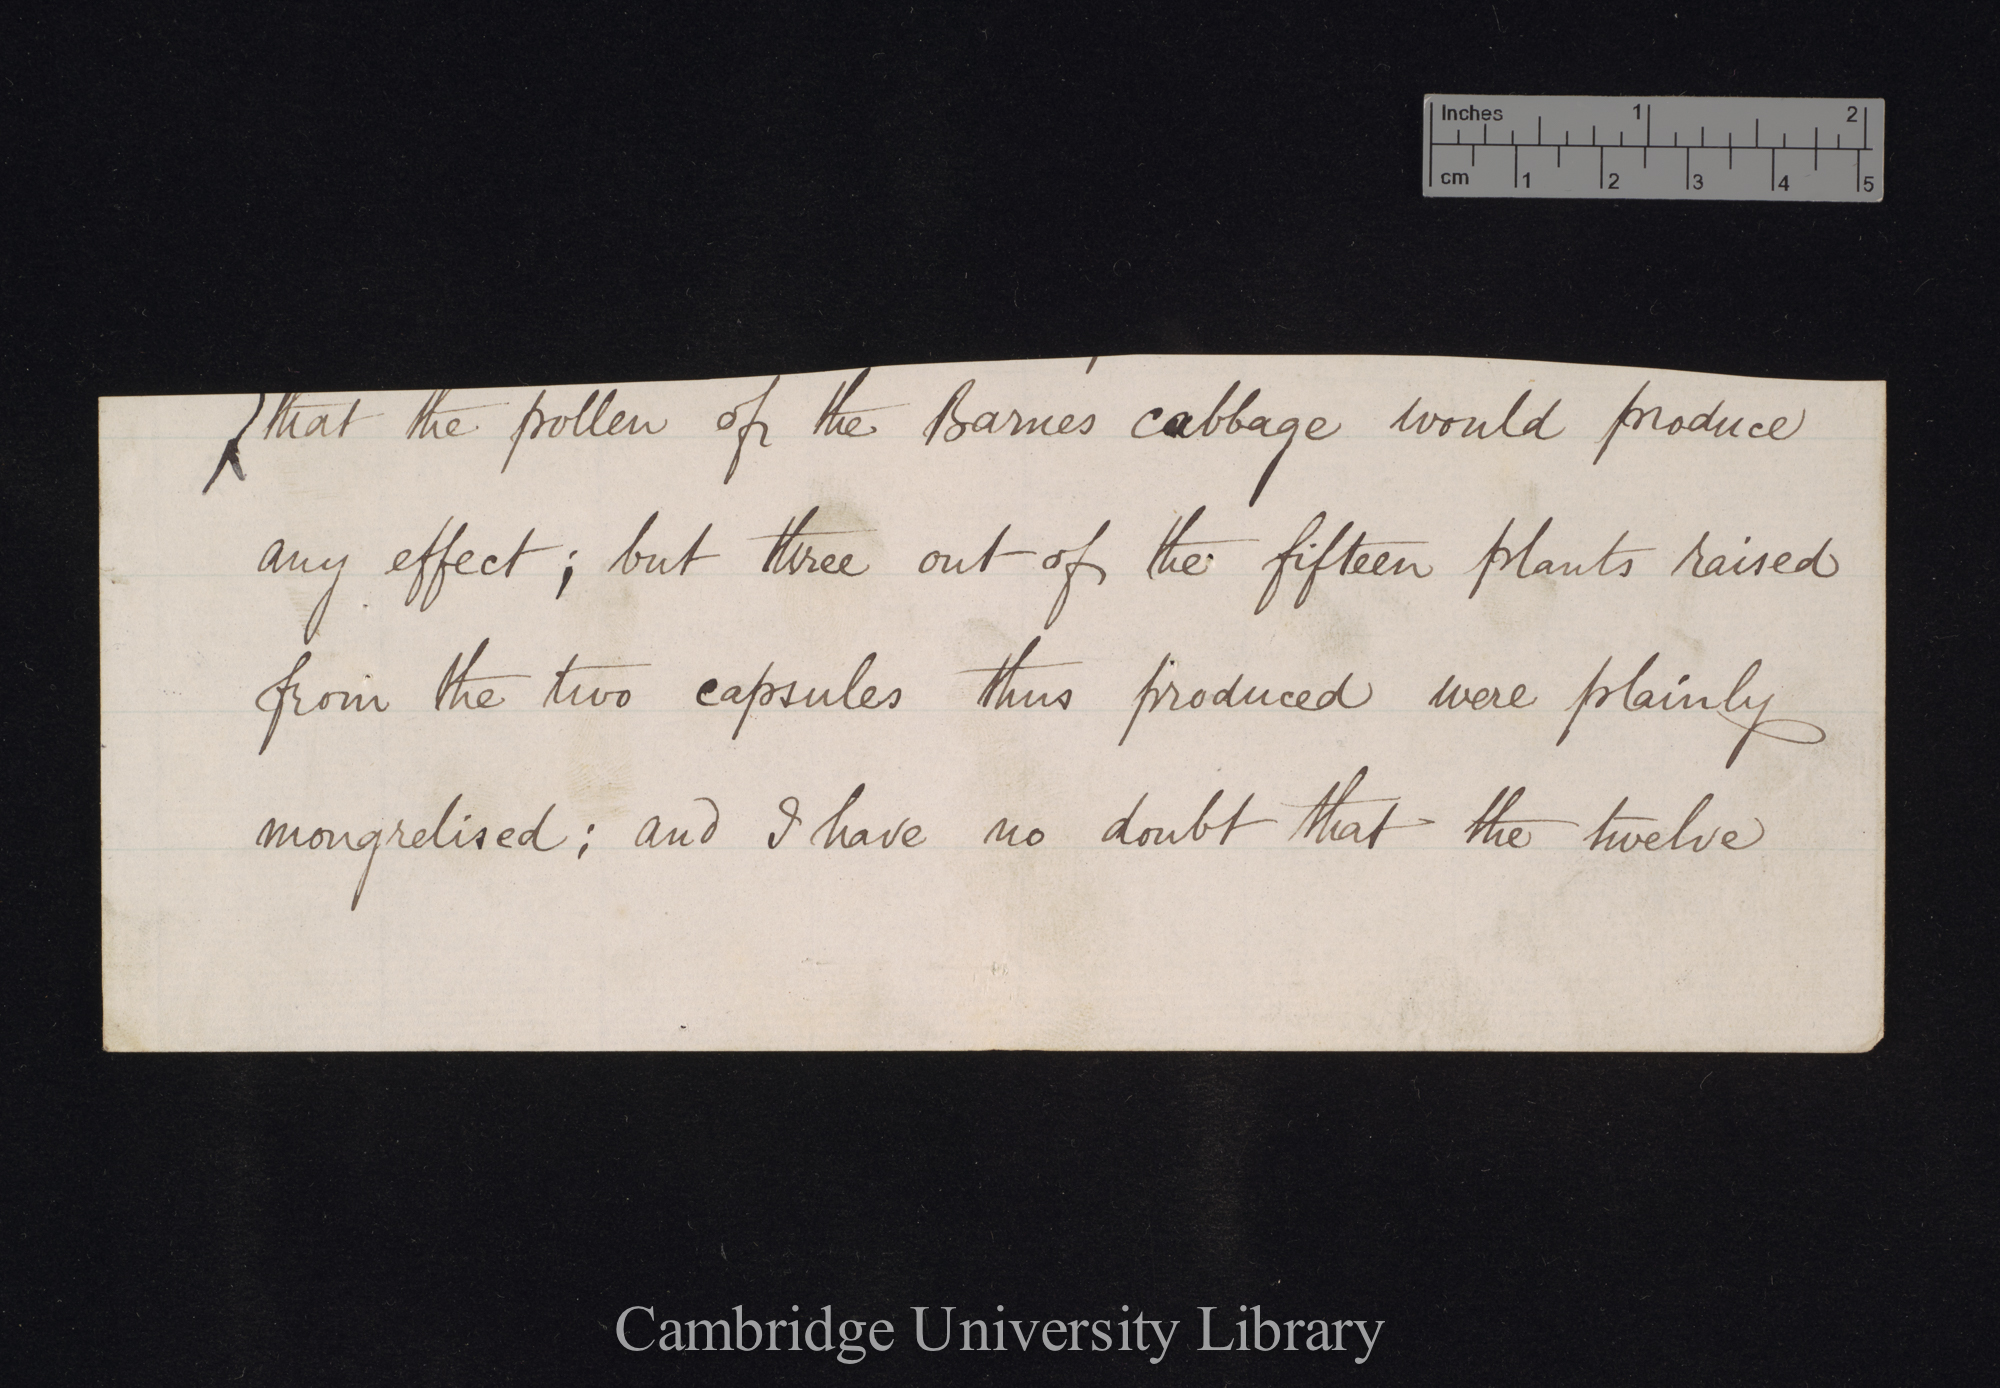 Inches 1 2
cm 1 2 3 4 5
that the pollen of the Barnes cabbage would produce
any effect; but three out of the fifteen plants raised
from the two capsules thus produced were plainly
mongrelised; and I have no doubt that the twelve
Cambridge University Library